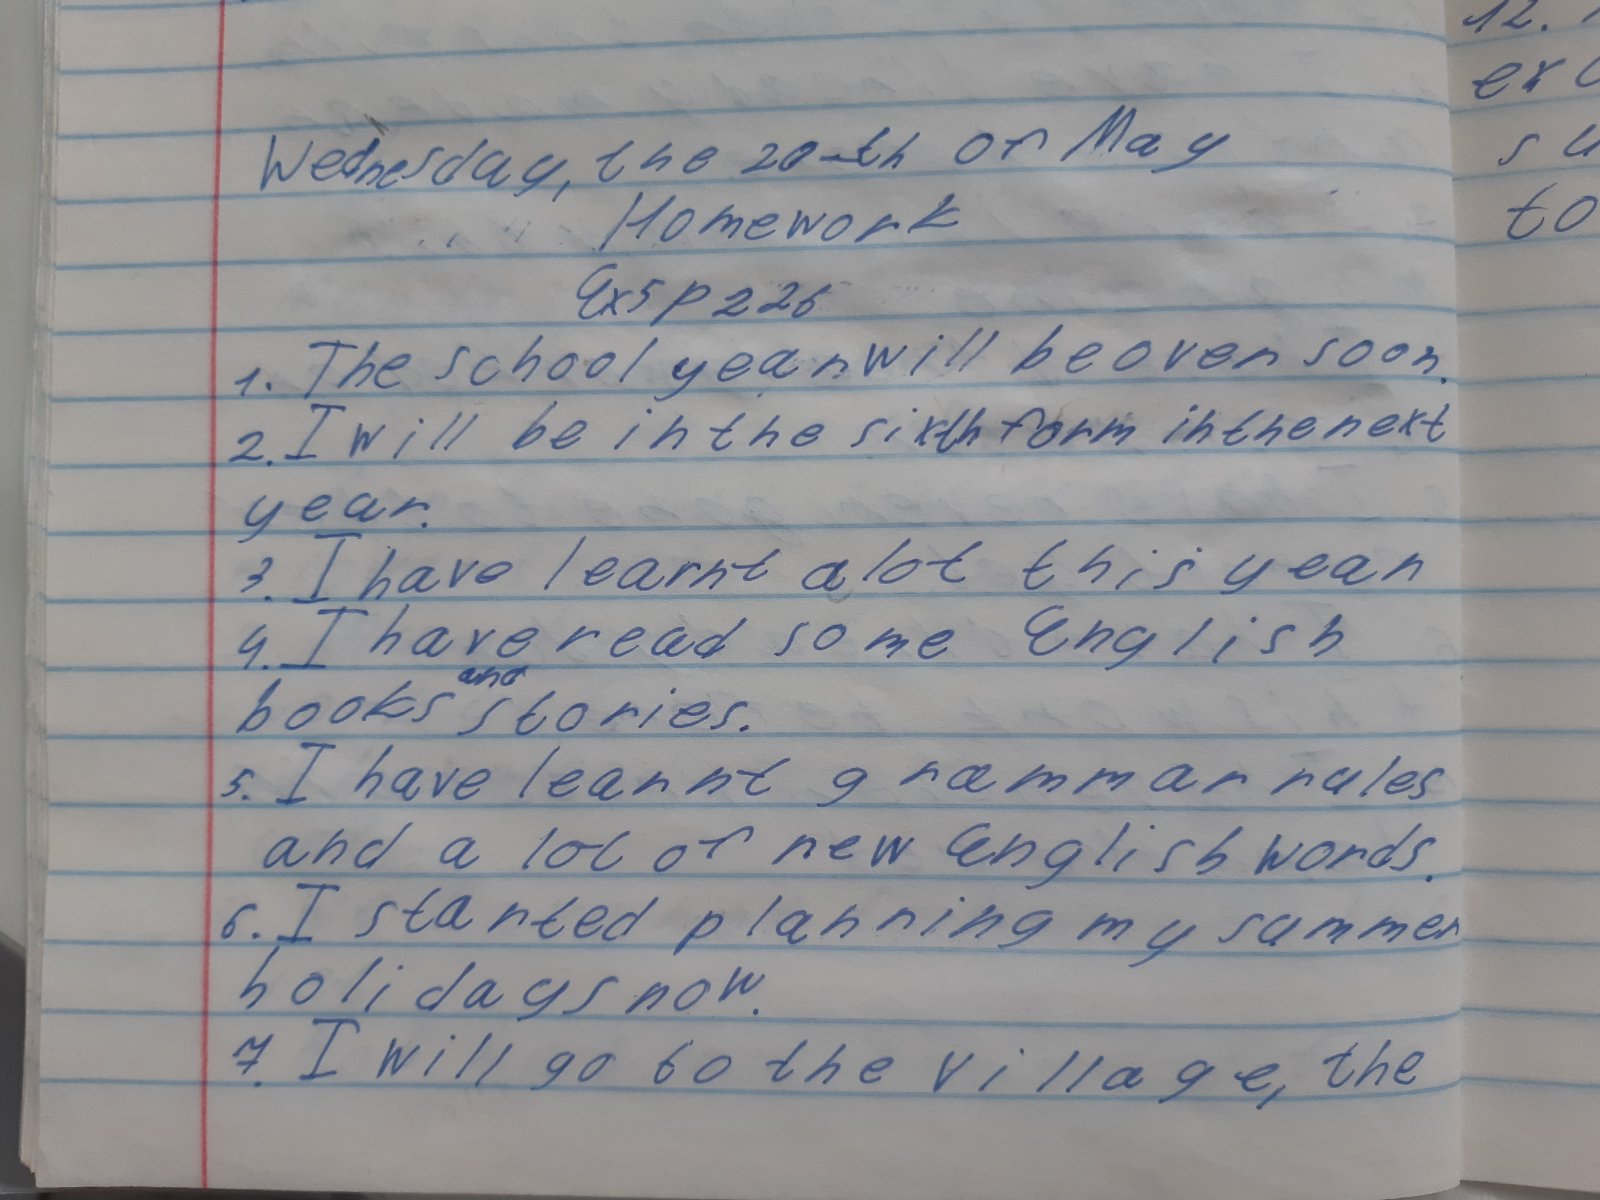 Wednesday, the 20-th of May
Homework
Ex5 p 226
1. The school year will be over soon.
2. I will be in the sixth form in the next
year.
3. I have learnt a lot this year
4. I have read some English
books and stories.
5. I have learnt grammar rules
and a lot of new English words.
6. I started planning my summer
holidays now.
7. I will go to the village, the
12.
su
to